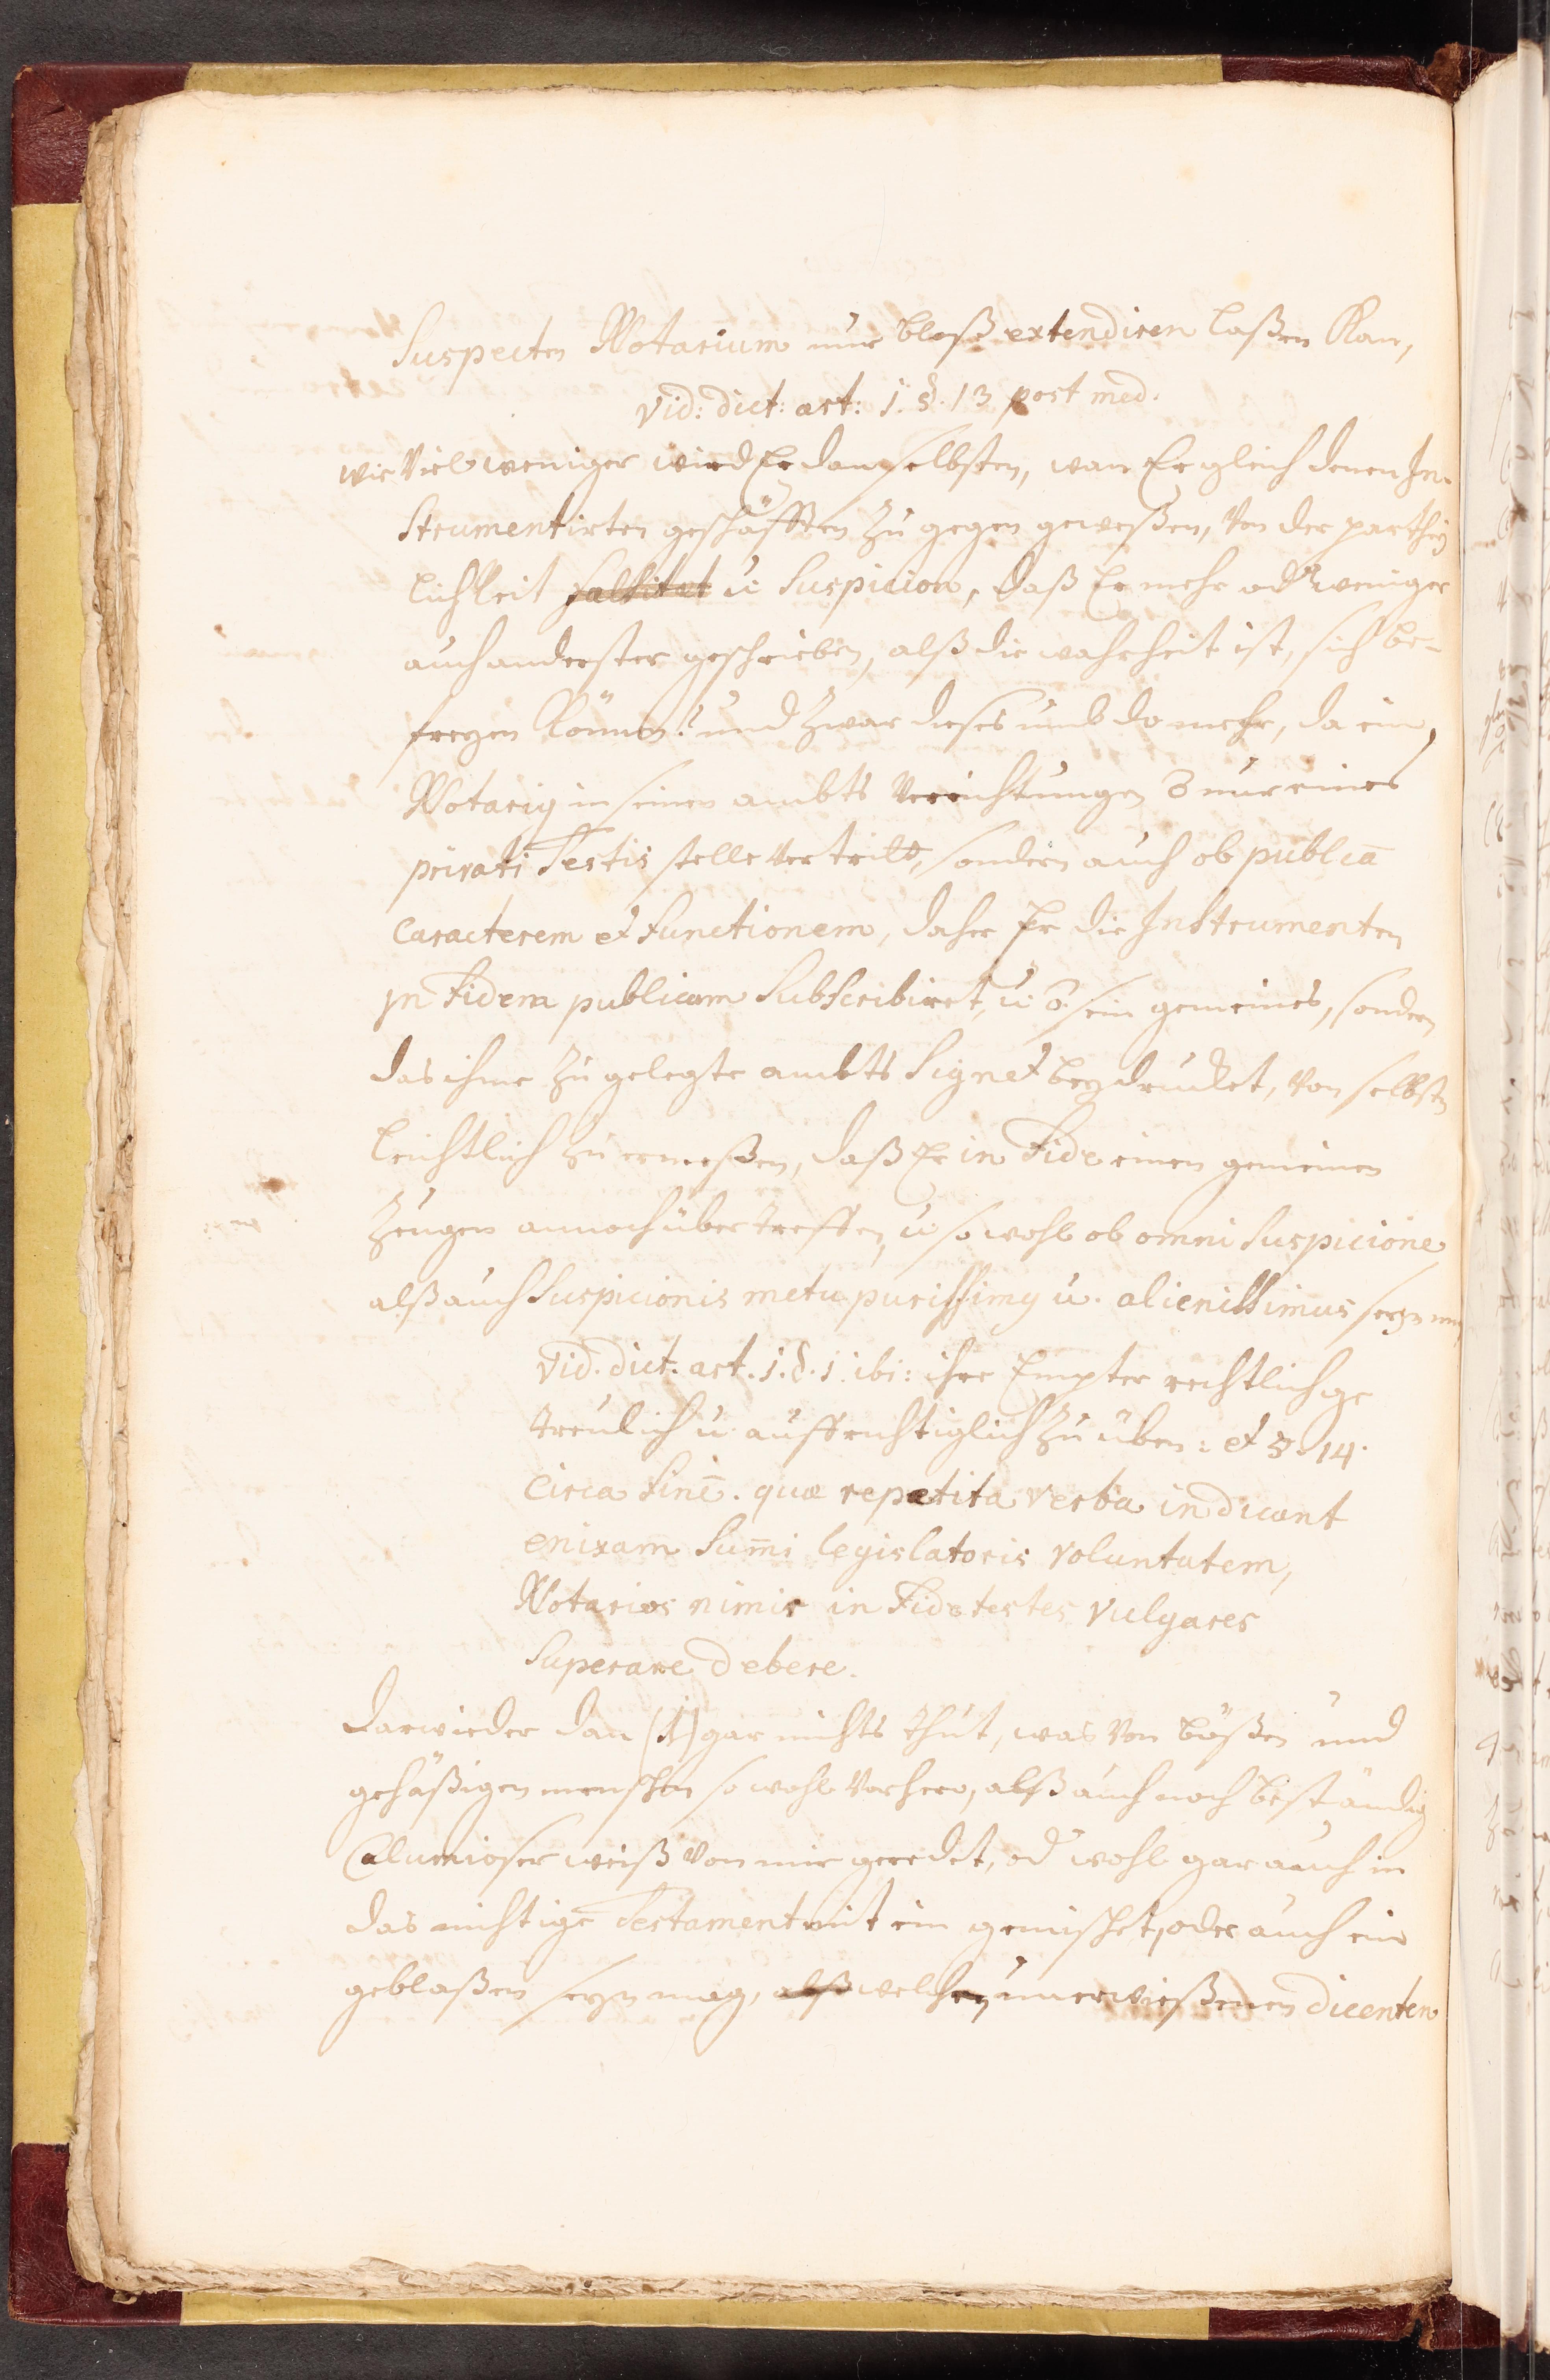 Suspecten Notarium nur bloß extendiren laßen Kan,
vid: dict: art: 1. §. 13 post med.
wie Viel weniger wird Er dan selbsten, wan Er gleich denen In-
strumentirten geschäfften zu gegen geweßen, Von der parthey
lichkeit falsitet u. Suspicion, daß Er mehr od weniger
auch anderster geschrieben, alß die wahrheit ist, sich be-
freyen Können? und zwar dieses umb do mehr, da ein
Notarig in seinen ambts Verrichtungen nur eines
privati Testis stelle Vertritt, sondern auch ob publicā
caracterem et functionem, daher Er die Instrumenten
in Fidem publicam Subscribiret, u. sein gemeines, sondern
das ihme zu gelegte ambts Signet beydrucket, Von selbsten
leichtlich zu ermeßen, daß Er in Fide einen gemeinen
Zeugen annoch übertreffen, u. so wohl ob omni Suspicione
alß auch Suspicionis metu purissimg u. alienissimus seyn
vid. dict. art. 1. §. 1. ibi: ihre Empter rechtlich ge
treulich u. auffrichtiglich zu üben: et §. 14.
circa finē. quæ repetita verba indicant
enixam Sum̄i legislatoris voluntatem,
Notarios nimir in Fide testes vulgares
Superare debere.
Darwieder dan gar nichts thut, was Von bößen und
gehäßigen menschen so wohl Vorhero, alß auch noch beständig
Calumioser weiß Von mir geredet, od wohl gar auch in
das nichtige Testament mit ein gemischet, oder auch ein
geblaßen seyn mag, alß welchen unerwießenen dicenten